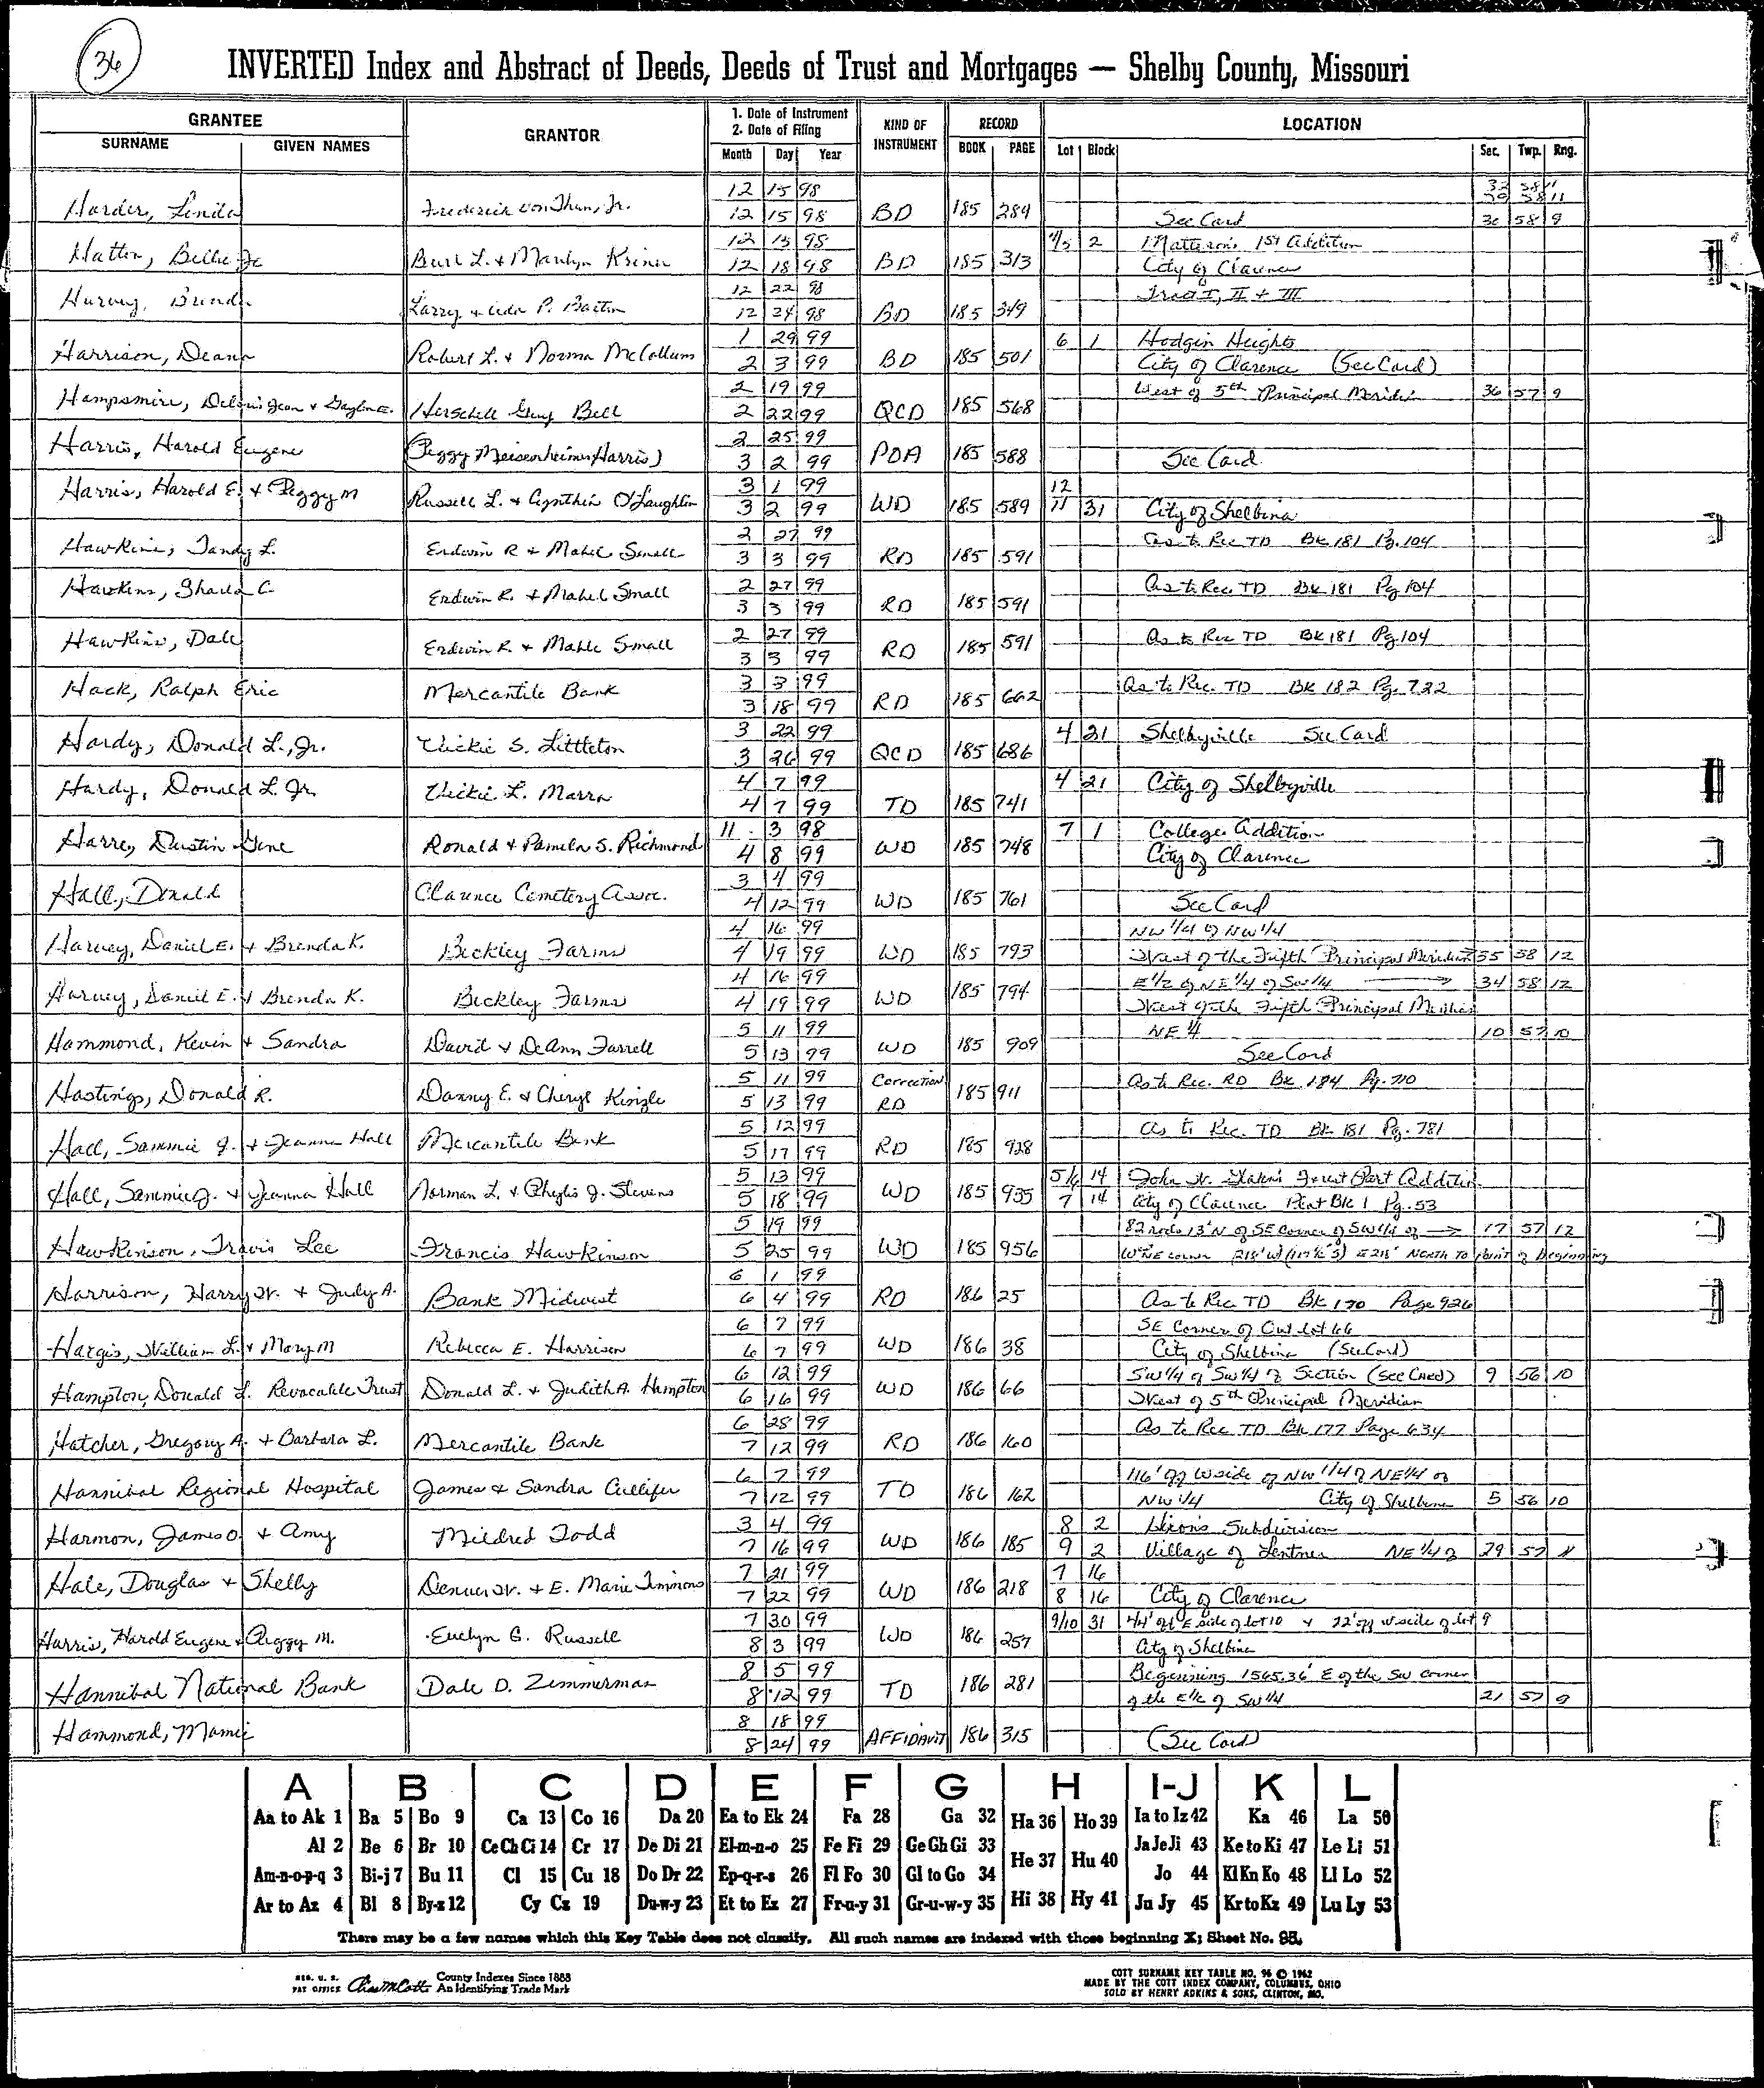 36
INVERTED Index and Abstract of Deeds, Deeds of Trust and Mortgages — Shelby County, Missouri
GRANTEE GRANTOR 1. Date of Instrument 2. Date of Filing KIND OF INSTRUMENT RECORD LOCATION
SURNAME GIVEN NAMES Month Day Year BOOK PAGE Lot Block Sec. Twp. Rng.
12 15 98
Harder, Linda Frederick von Thun, Jr. 12 15 98 BD 185 284 See Card 30 58 9
12 15 98 2 1st Addition
Hatton, Billie Jo Burl L. & Marilyn Kriner 12 18 98 BD 185 313 City of Clarence
12 22 98 Tract I, II + III
Harvey, Brenda Larry & P. Barton 12 24 98 BD 185 349
1 29 99 6 1 Hodgin Heights
Harrison, Deana Robert L. & Norma McCollum 2 3 99 BD 185 501 City of Clarence (See Card)
2 19 99 West of 5th Principal Meridian 36 57 9
Hampsmire, Jean & Gaylon E. Herschell Guy Bell 2 22 99 QCD 185 568
2 25 99
Harris, Harold Eugene (Peggy Meisenheimer Harris) 3 2 99 POA 185 588 See Card
3 1 99 12
Harris, Harold E. & Peggy M Russell L. & Cynthia O'Laughlin 3 2 99 WD 185 589 11 31 City of Shelbina
2 27 99 As to Rec TD Bk 181 Pg. 104
Hawkins, Tandy L. Erdwin R & Mabel Small 3 3 99 RD 185 591
2 27 99 As to Rec. TD Bk 181 Pg 104
Hawkins, C. Erdwin R. & Mabel Small 3 3 99 RD 185 591
2 27 99 As to Rec TD Bk 181 Pg. 104
Hawkins, Dale Erdwin R. & Mable Small 3 3 99 RD 185 591
3 3 99 As to Rec. TD Bk 182 Pg. 722
Hack, Ralph Eric Mercantile Bank 3 18 99 RD 185 662
3 22 99 4 21 Shelbyville See Card
Hardy, Donald L., Jr. Vickie S. Littleton 3 26 99 QCD 185 686
4 7 99 4 21 City of Shelbyville
Hardy, Donald L. Jr. Vickie L. Marra 4 7 99 TD 185 741
11 3 98 7 1 College Addition
Harre, Dustin Gene Ronald & Pamela S. Richmond 4 8 99 WD 185 748 City of Clarence
3 4 99
Hall, Donald Clarence Cemetery Assoc. 4 12 99 WD 185 761 See Card
4 16 99 NW 1/4 of NW 1/4
Harvey, Daniel E. & Brenda K. Beckley Farms 4 19 99 WD 185 793 West of the Fifth Principal Meridian 35 58 12
4 16 99 E 1/2 of NE 1/4 of SW 1/4 → 34 58 12
Harvey, Daniel E. & Brenda K. Beckley Farms 4 19 99 WD 185 794 West of the Fifth Principal Meridian
5 11 99 NE 1/4 10 57 10
Hammond, Kevin & Sandra David & DeAnn Farrell 5 13 99 WD 185 909 See Card
5 11 99 Correction As to Rec. RD Bk 184 Pg. 710
Hastings, Donald R. Danny E. & Cheryl Kinzle 5 13 99 RD 185 911
5 12 99 As to Rec. TD Bk 181 Pg. 781
Hall, Sammie J. & Jeanna Hall Mercantile Bank 5 17 99 RD 185 928
5 13 99 5/6 14 John W. Part Addition
Hall, Sammie J. & Jeanna Hall Norman L. & Phyllis J. Stevens 5 18 99 WD 185 935 7 14 City of Clarence Plat Bk 1 Pg. 53
5 19 99 82 rods 13' N of SE Corner of SW 1/4 of → 17 57 12
Hawkinson, Travis Lee Francis Hawkinson 5 25 99 WD 185 956 NE corner 218' W E 218' North to point of beginning
6 1 99
Harrison, Harry W. & Judy A. Bank Midwest 6 4 99 RD 186 25 As to Rec TD Bk 170 Page 926
6 7 99 SE Corner of Out lot 66
Hargis, William L. & Mary M Rebecca E. Harrison 6 7 99 WD 186 38 City of Shelbina (See Card)
6 12 99 SW 1/4 of SW 1/4 of Section (See Card) 9 56 10
Hampton, Donald L. Revocable Trust Donald L. & Judith A. Hampton 6 16 99 WD 186 66 West of 5th Principal Meridian
6 28 99 As to Rec TD Bk 177 Page 634
Hatcher, Gregory A. & Barbara L. Mercantile Bank 7 12 99 RD 186 160
6 7 99 116' off W side of NW 1/4 of NE 1/4 of
Hannibal Regional Hospital James & Sandra Cullifer 7 12 99 TD 186 162 NW 1/4 City of Shelbina 5 56 10
3 4 99 8 2 Subdivision
Harmon, James O. & Amy Mildred Todd 7 16 99 WD 186 185 9 2 Village of Lentner NE 1/4 of 29 57 11
7 21 99 7 16
Hale, Douglas & Shelly Denver W. & E. Marie Timmons 7 22 99 WD 186 218 8 16 City of Clarence
7 30 99 9/10 31 44' off E side of lot 10 & 22' off W side of lot 9
Harris, Harold Eugene & Peggy M. Evelyn G. Russell 8 3 99 WD 186 257 City of Shelbina
8 5 99 Beginning 1565.36' E of the SW corner
Hannibal National Bank Dale D. Zimmerman 8 12 99 TD 186 281 of the E 1/2 of SW 1/4 21 57 9
8 18 99
Hammond, Mamie 8 24 99 AFFIDAVIT 186 315 (See Card)
A B C D E F G H I-J K L
Aa to Ak 1 Ba 5 Bo 9 Ca 13 Co 16 Da 20 Ea to Ek 24 Fa 28 Ga 32 Ha 36 Ho 39 Ia to Iz 42 Ka 46 La 50
Al 2 Be 6 Br 10 Ce Ch Ci 14 Cr 17 De Di 21 El-m-n-o 25 Fe Fi 29 Ge Gh Gi 33 He 37 Hu 40 Ja Je Ji 43 Ke to Ki 47 Le Li 51
Am-n-o-p-q 3 Bi-j 7 Bu 11 Cl 15 Cu 18 Do Dr 22 Ep-q-r-s 26 Fl Fo 30 Gl to Go 34 Jo 44 Kl Kn Ko 48 Ll Lo 52
Ar to Az 4 Bl 8 By-z 12 Cy Cz 19 Du-w-y 23 Et to Ez 27 Fr-u-y 31 Gr-u-w-y 35 Hi 38 Hy 41 Ju Jy 45 Kr to Kz 49 Lu Ly 53
There may be a few names which this Key Table does not classify. All such names are indexed with those beginning X; Sheet No. 95.
REG. U. S. PAT OFFICE County Indexes Since 1888 An Identifying Trade Mark
COTT SURNAME KEY TABLE NO. 96 © 1962
MADE BY THE COTT INDEX COMPANY, COLUMBUS, OHIO
SOLD BY HENRY ADKINS & SONS, CLINTON, MO.